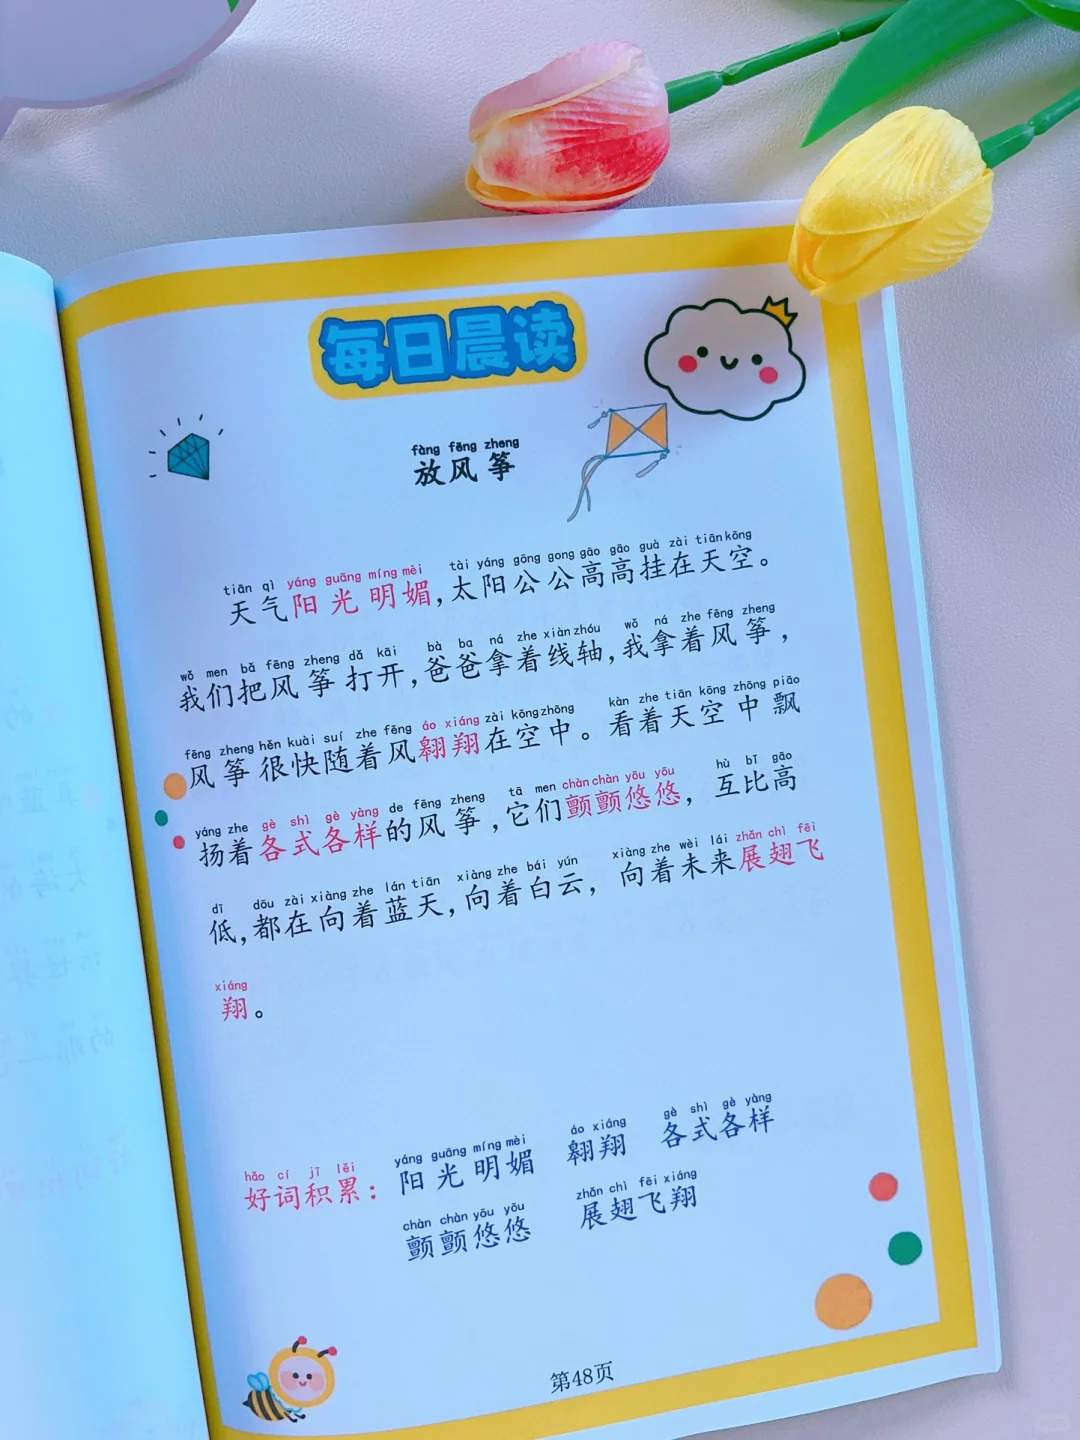 每日晨读
fàng fēng zheng
放风筝
tiān qì yáng guāng míng mèi tài yáng gōng gong gāo gāo guà zài tiān kōng
天气阳光明媚,太阳公公高高挂在天空。
wǒ men bǎ fēng zheng dǎ kāi bà ba ná zhe xiàn zhóu wǒ ná zhe fēng zheng
我们把风筝打开,爸爸拿着线轴,我拿着风筝,
fēng zheng hěn kuài suí zhe fēng áo xiáng zài kōng zhōng kàn zhe tiān kōng zhōng piāo
风筝很快随着风翱翔在空中。看着天空中飘
yáng zhe gè shì gè yàng de fēng zheng tā men chàn chàn yōu yōu hù bǐ gāo
扬着各式各样的风筝,它们颤颤悠悠,互比高
dī dōu zài xiàng zhe lán tiān xiàng zhe bái yún xiàng zhe wèi lái zhǎn chì fēi
低,都在向着蓝天,向着白云,向着未来展翅飞
xiáng
翔。
hǎo cí jī lěi yáng guāng míng mèi áo xiáng gè shì gè yàng
好词积累:阳光明媚 翱翔 各式各样
chàn chàn yōu yōu zhǎn chì fēi xiáng
颤颤悠悠 展翅飞翔
第48页